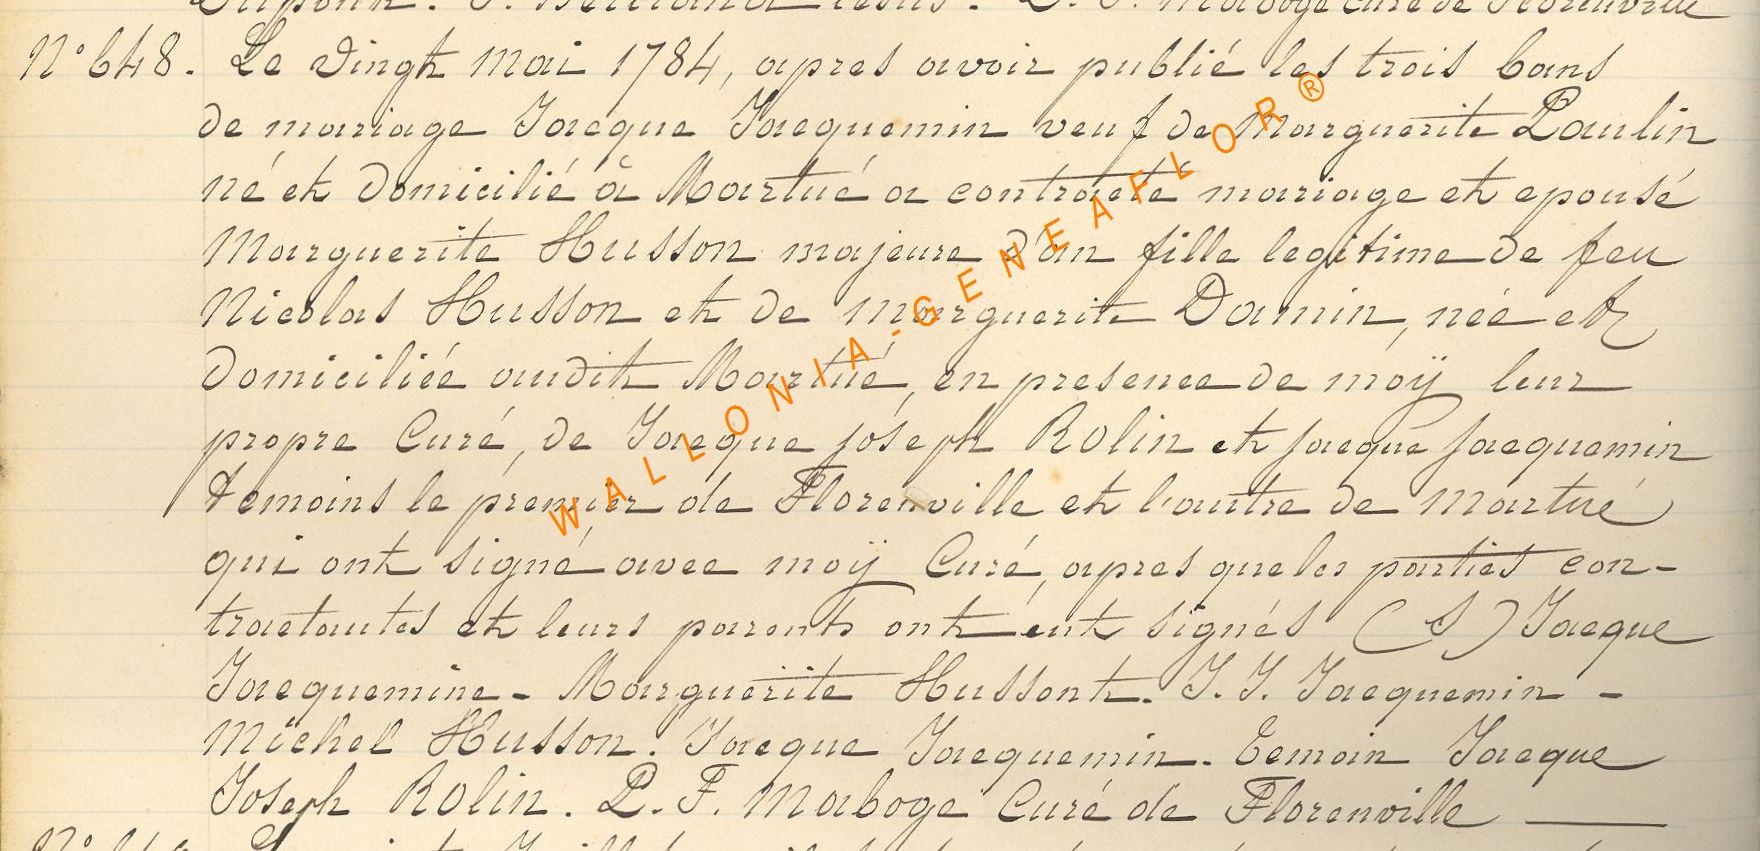 J. Bertrand L. F. Maboge curé de Florenville
N° 648. Le vingt mai 1784, apres avoir publié les trois bans
de mariage Jacque Jacquemin veuf de Marguerite Paulin
né et domicilié à Martué a contracté mariage et epousé
Marguerite Husson majeure d'an fille legitime de feu
Nicolas Husson et de Marguerite Damin, née et
domiciliée audit Martué, en presence de moÿ leur
propre Curé, de Jacque joseph Rolin et jacque jacquemin
temoins le premier de Florenville et l'autre de Martué
qui ont signé avec moÿ Curé, apres que les parties con-
tractantes et leurs parents ont eut signés (S) Jacque
Jacquemine - Marguerite Hussont. J. J. Jacquemin -
Michel Husson. Jacque Jacquemin. Temoin Jacque
Joseph Rolin. P. F. Maboge Curé de Florenville
WALLONIA-GENEAFLOR®